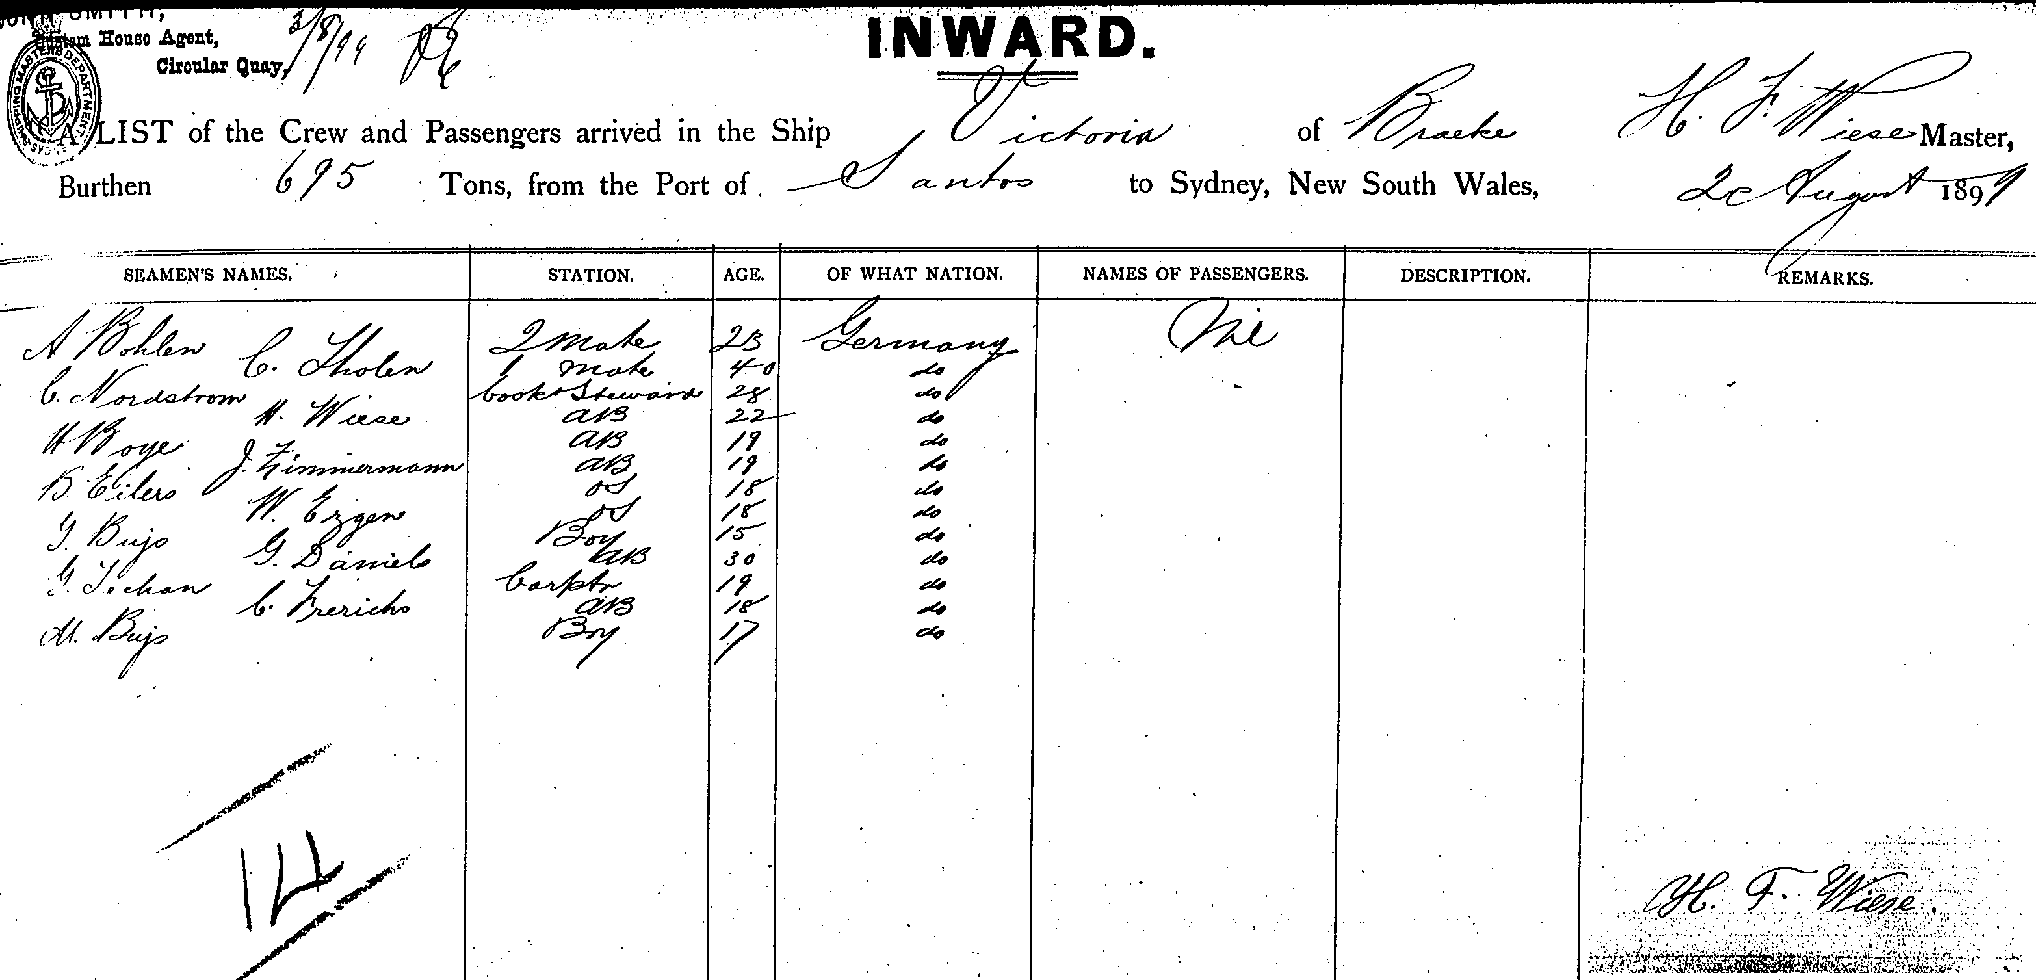 JOHN SMITH,
Custom House Agent,
Circular Quay,
3/8/99
INWARD.
SHIPPING MASTERS DEPARTMENT
A LIST of the Crew and Passengers arrived in the Ship Victoria of Braeke H. F. Wiese Master,
Burthen 695 Tons, from the Port of Santos to Sydney, New South Wales, 2d August 1899
SEAMEN'S NAMES. STATION. AGE. OF WHAT NATION. NAMES OF PASSENGERS. DESCRIPTION. REMARKS.
A Bohlen 2 Mate 23 Germany Nil
C. Tholen 1 Mate 40 do
C. Nordstrom Cook & Steward 28 do
H. Wiese AB 22 do
H Boye AB 19 do
J. Zimmermann AB 19 do
B Eilers OS 18 do
W. Ergen OS 18 do
J. Bujs Boy 15 do
G. Daniels AB 30 do
G. Techan Carptr 19 do
C. Frerichs AB 18 do
M. Bujs Boy 17 do
14
H. F. Wiese.